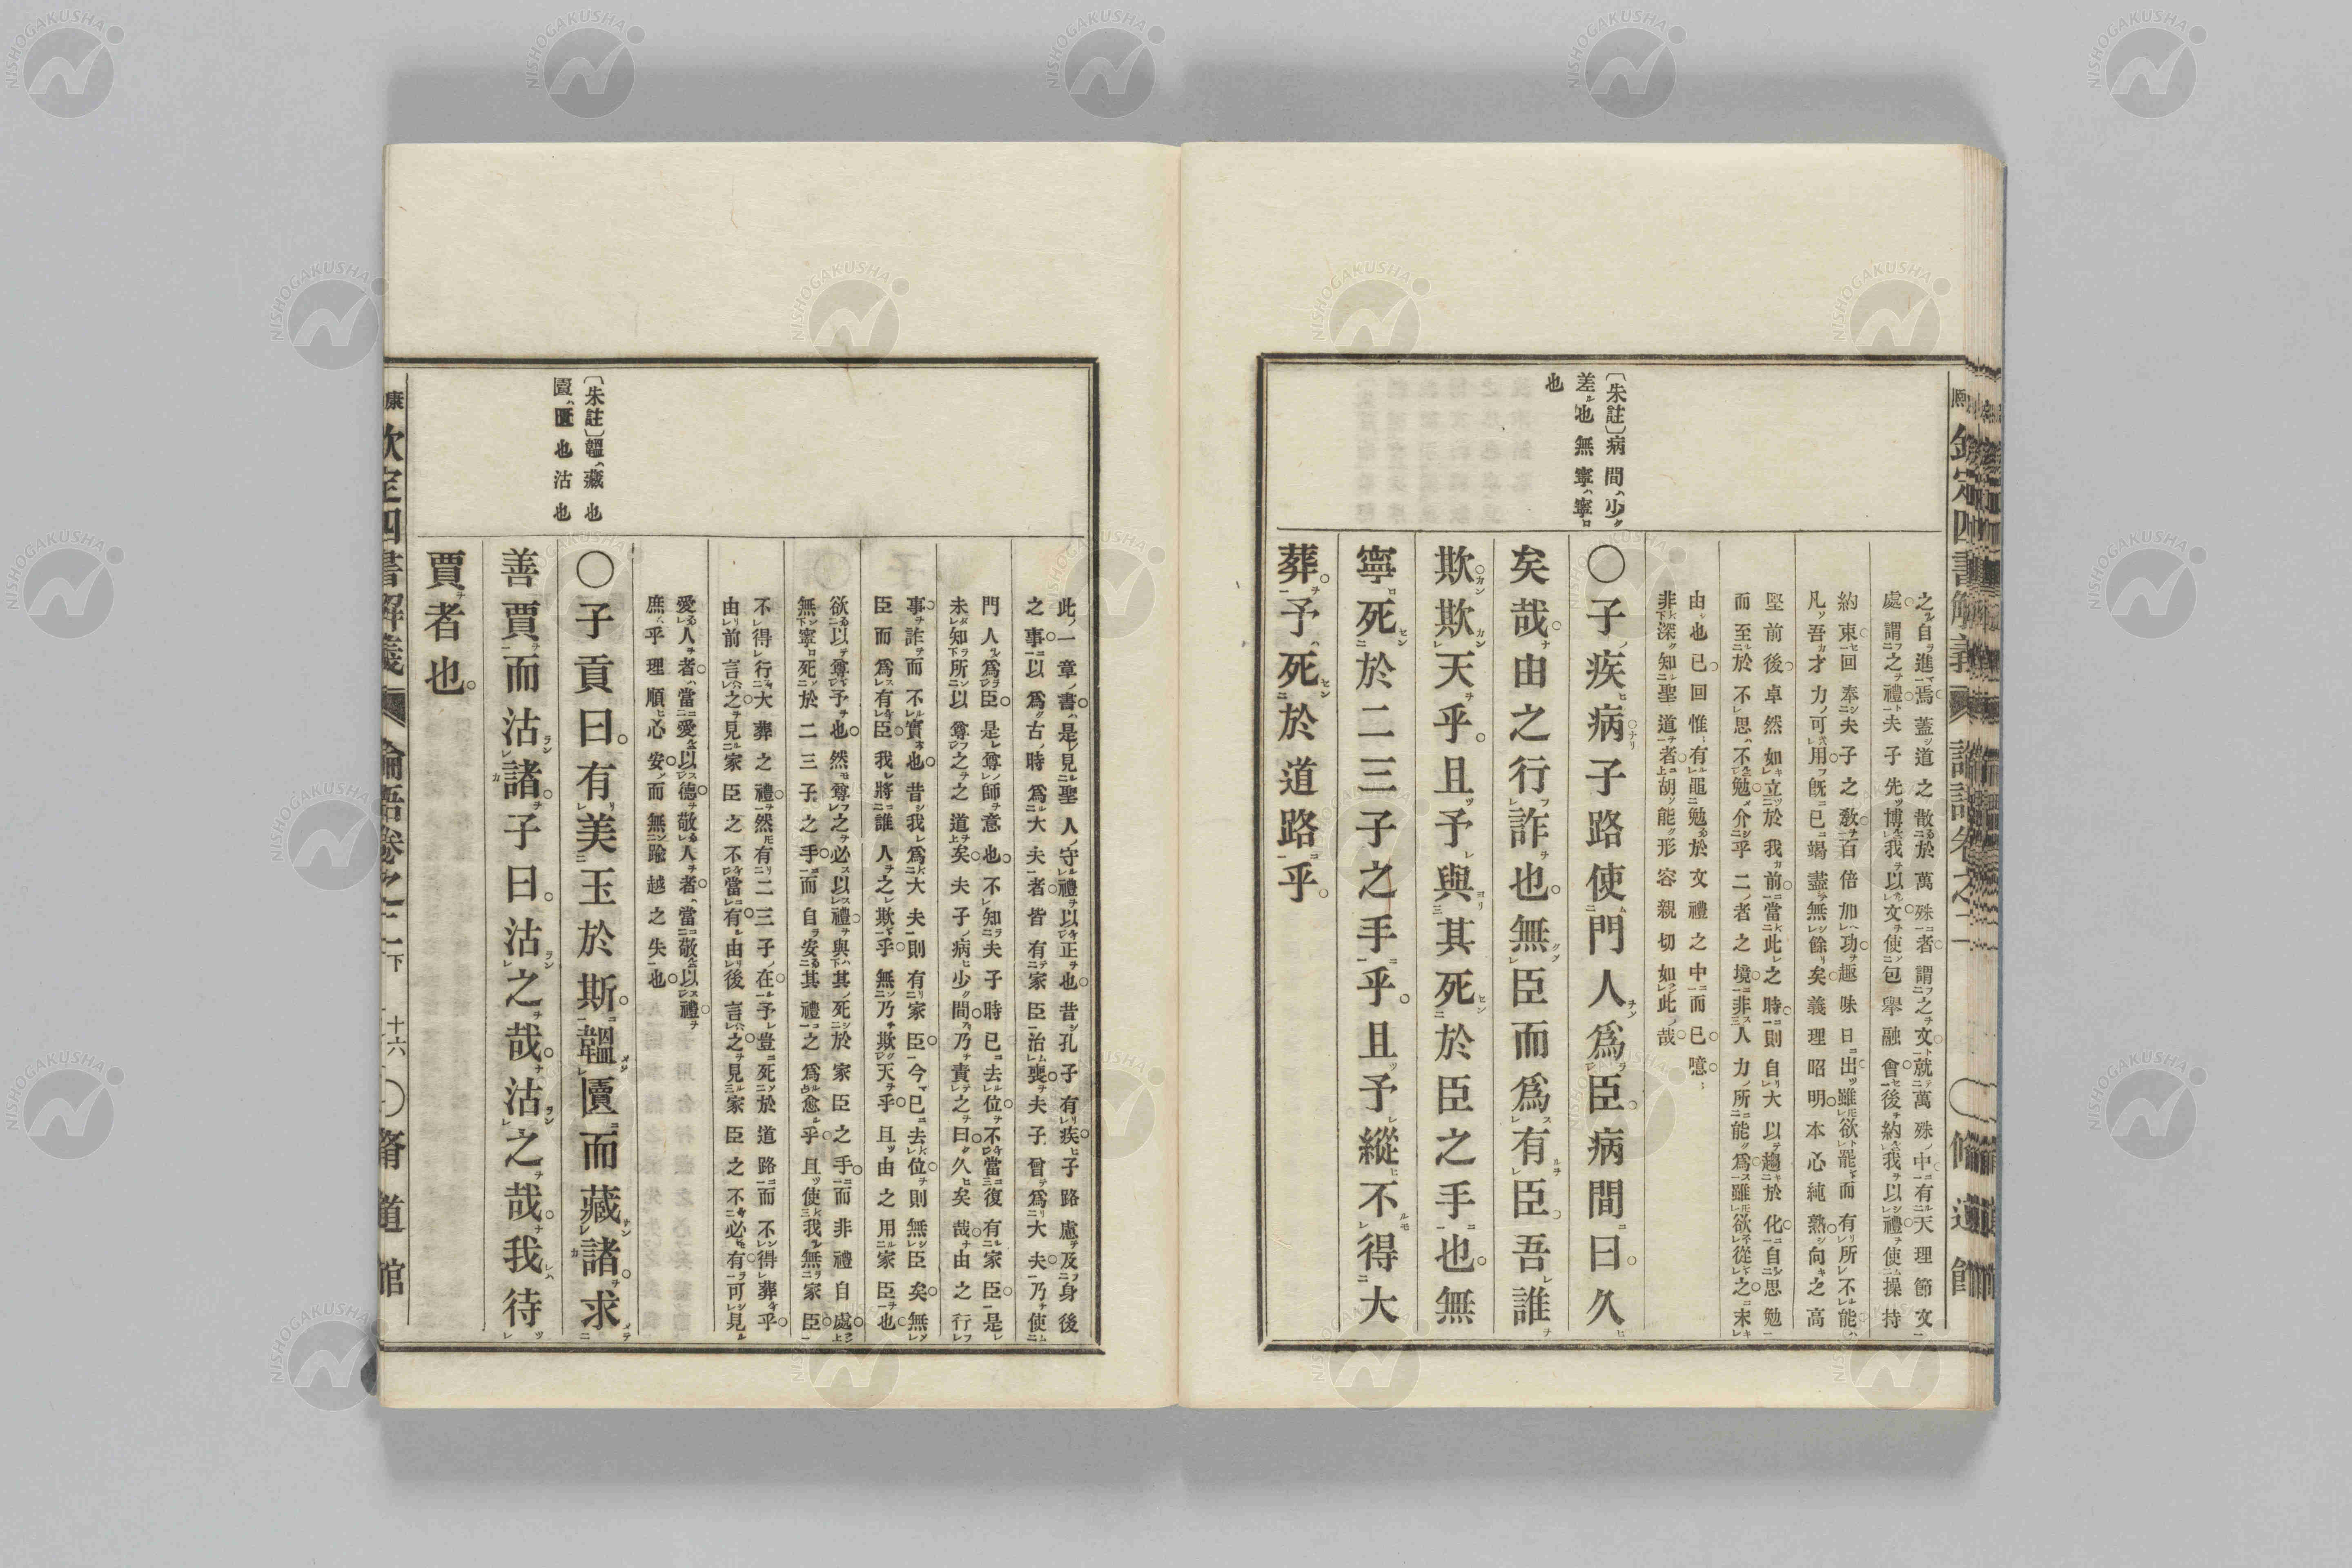 欽定四書解義
論語卷之二
脩道館
〔朱註〕病間、少
差也無寧、寧
也
之自進焉蓋道之散於萬殊者謂之文就萬殊中有天理節文
處謂之禮夫子先博我以文使包舉融會後約我以禮使操持
約束回奉夫子之敎百倍加功趣味日出雖欲罷而有所不能
凡吾才力可用既已竭盡無餘矣義理昭明本心純熟向之高
堅前後卓然如立於我前當此之時則自大以趨於化自思勉
而至於不思不勉介乎二者之境非人力所能爲雖欲從之末
由也已回惟有黽勉於文禮之中而已噫
非深知聖道者胡能形容親切如此哉
〇子疾病子路使門人爲臣病間曰久
矣哉由之行詐也無臣而爲有臣吾誰
欺欺天乎且予與其死於臣之手也無
寧死於二三子之手乎且予縱不得大
葬予死於道路乎
〔朱註〕韞、藏也
匵、匱也沽也
此一章書是見聖人守禮以正也昔孔子有疾子路慮及身後
之事以爲古時爲大夫者皆有家臣治喪夫子曾爲大夫乃使
門人爲臣是尊師意也不知夫子時已去位不當復有家臣是
未知所以尊之之道矣夫子病少間乃責之曰久矣哉由之行
事詐而不實也昔我爲大夫則有家臣今已去位則無臣矣無
臣而爲有臣我將誰人之欺乎無乃欺天乎且由之用家臣也
欲以尊予也然尊之必以禮與其死於家臣之手而非禮自處
無寧死於二三子之手而自安其禮之爲愈乎且使我無家臣
不得行大葬之禮然有二三子在予豈死於道路而不得葬乎
由前言之見家臣之不當有由後言之見家臣之不必有可見
愛人者當愛以德敬人者當敬以禮
庶乎理順心安而無踰越之失也
〇子貢曰有美玉於斯韞匵而藏諸求
善賈而沽諸子曰沽之哉沽之哉我待
賈者也
康
欽定四書解義
論語卷之二下
十六
脩道館